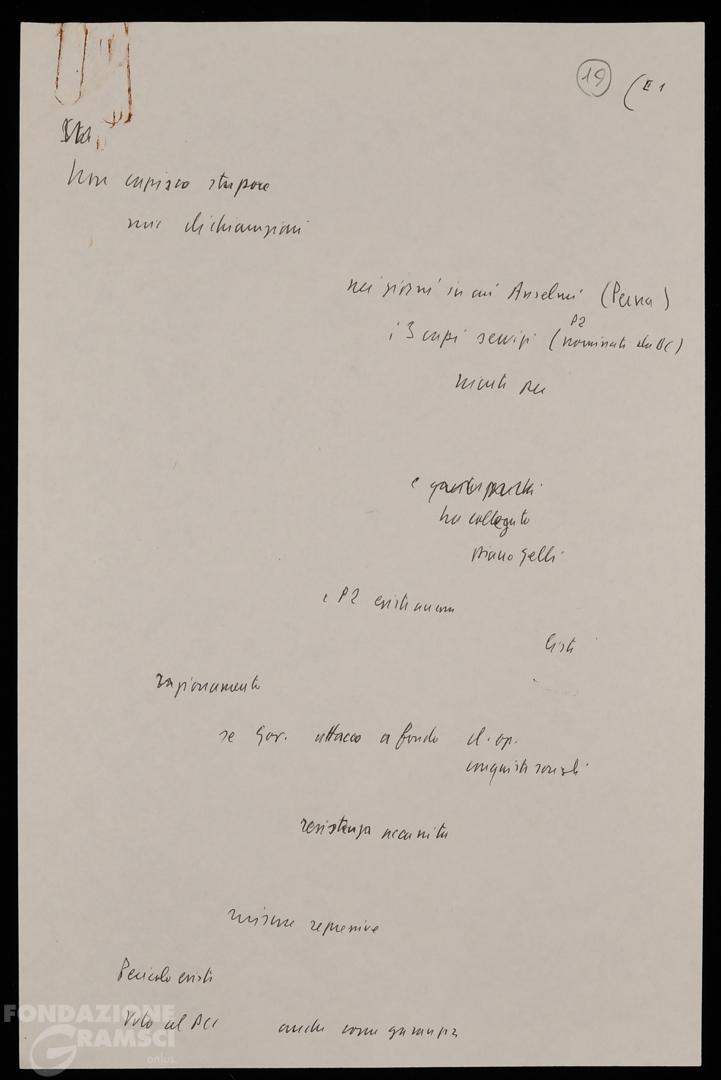 19 (II 1
Non capisco stupore
mie dichiarazioni
nei giorni in cui Anselmi (Perna)
P2
i 3 capi servizi (nominati da DC)
niente PCI
e
ha collegato
piano Gelli
e P2 esiste ancora
ragionamento
se Gov. attacco a fondo cl. op.
conquiste sociali
resistenza accanita
misure repressive
Pericolo esiste
Voto al PCI anche come garanzia
FONDAZIONE
GRAMSCI
onlus